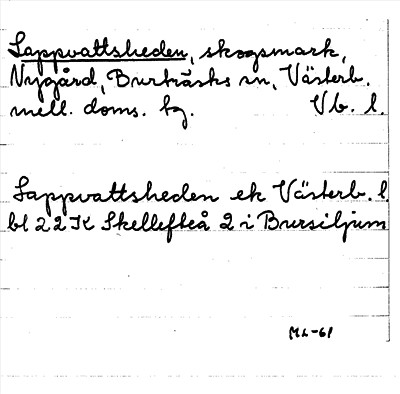 Lappvattsheden, skogsmark,
Nygård, Burträsks sn, Västerb.
mell. doms. tg. Vb. l.
Lappvattsheden ek Västerb. l
bl 22K Skellefteå 2 i Bursiljum
ML-61